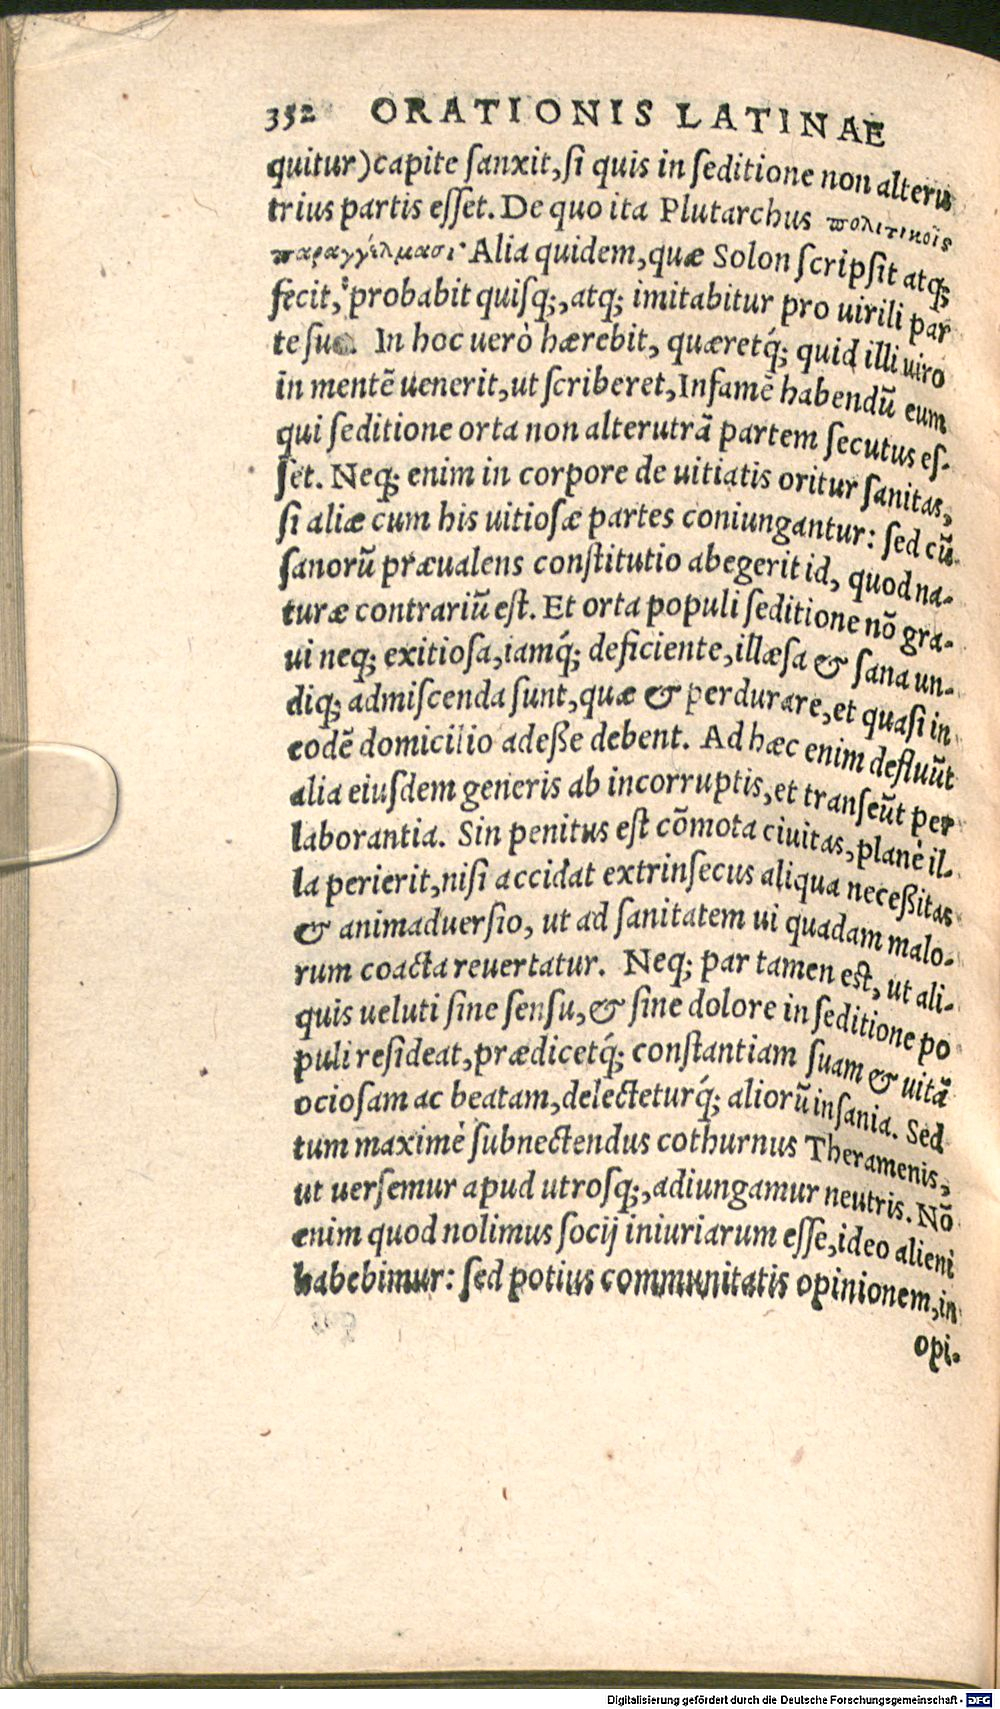 352 ORATIONIS LATINAE
quitur) capite ſanxit, ſi quis in ſeditione non alteru
trius partis eſſet. De quo ita Plutarchus πολιτικοῖς
παραγγέλμασι· Alia quidem, quæ Solon ſcripſit atq;
fecit, probabit quiſq;, atq; imitabitur pro uirili par
te ſua. In hoc uerò hærebit, quæretq́; quid illi uiro
in mentẽ uenerit, ut ſcriberet, Infamẽ habendũ eum
qui ſeditione orta non alterutrã partem ſecutus eſ-
ſet. Neq; enim in corpore de uitiatis oritur ſanitas,
ſi aliæ cum his uitioſæ partes coniungantur: ſed cũ
ſanorũ præualens conſtitutio abegerit id, quod na-
turæ contrariũ eſt. Et orta populi ſeditione nõ gra-
ui neq; exitioſa, iamq́; deficiente, illæſa & ſana un-
diq; admiſcenda ſunt, quæ & perdurare, et quaſi in
eodẽ domicilio adeße debent. Ad hæc enim defluũt
alia eiuſdem generis ab incorruptis, et tranſeũt per
laborantia. Sin penitus eſt cõmota ciuitas, planè il-
la perierit, niſi accidat extrinſecus aliqua neceßitas
& animaduerſio, ut ad ſanitatem ui quadam malo-
rum coacta reuertatur. Neq; par tamen eſt, ut ali-
quis ueluti ſine ſenſu, & ſine dolore in ſeditione po
puli reſideat, prædicetq́; conſtantiam ſuam & uitã
ocioſam ac beatam, delecteturq́; aliorũ inſania. Sed
tum maximè ſubnectendus cothurnus Theramenis,
ut uerſemur apud utroſq;, adiungamur neutris. Nõ
enim quod nolimus ſocij iniuriarum eſſe, ideo alieni
habebimur: ſed potius communitatis opinionem, in
opi-
Digitalisierung gefördert durch die Deutsche Forschungsgemeinschaft - DFG